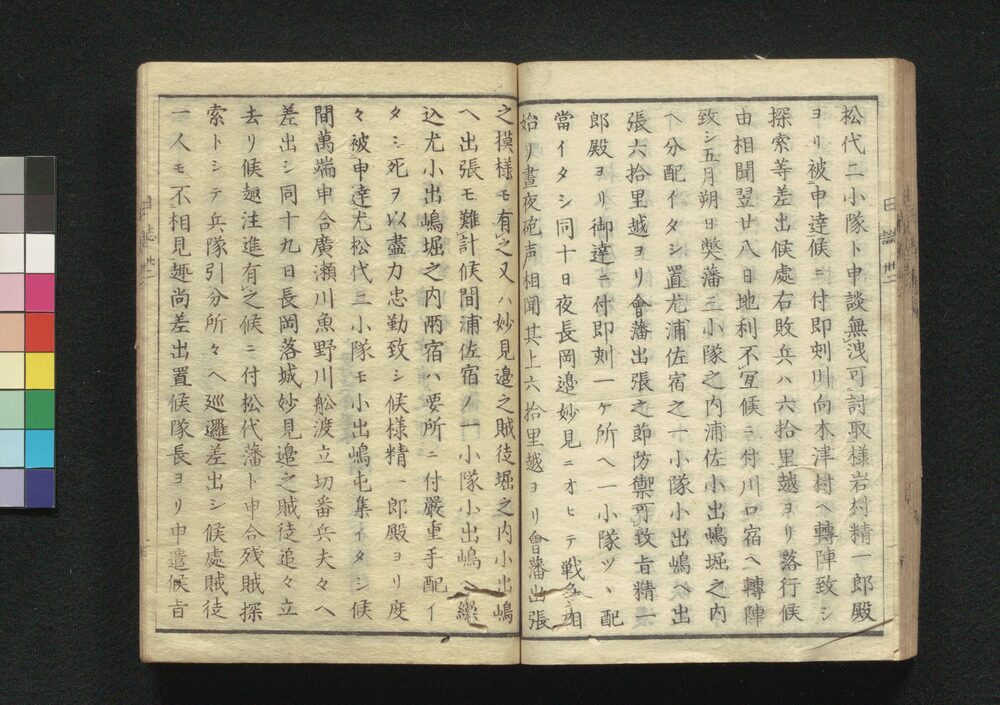 松代二小隊ト申談無洩可討取様岩村精一郎殿
ヨリ被申達候ニ付即刻川向本津村ヘ轉陣致シ
探索等差出候處右敗兵ハ六拾里越ヨリ落行候
由相聞翌廿八日地利不宜候ニ付川口宿ヘ轉陣
致シ五月朔日弊藩三小隊之内浦佐小出嶋堀之内
ヘ分配イタシ置尤浦佐宿之一小隊小出嶋ヘ出
張六拾里越ヨリ會藩出張之節防禦可致旨精一
郎殿ヨリ御達ニ付即刻一ケ所ヘ一小隊ツヽ配
當イタシ同十日夜長岡邉妙見ニオヒテ戦争相
始リ晝夜砲声相聞其上六拾里越ヨリ會藩出張
之模様モ有之又ハ妙見邉之賊徒堀之内小出嶋
ヘ出張モ難計候間浦佐宿ノ一小隊小出嶋ヘ繰
込尤小出嶋堀之内兩宿ハ要所ニ付厳重手配イ
タシ死ヲ以盡力忠勤致シ候様精一郎殿ヨリ度
々被申達尤松代三小隊モ小出嶋屯集イタシ候
間萬端申合廣瀬川魚野川舩渡立切番兵夫々ヘ
差出シ同十九日長岡落城妙見邉之賊徒追々立
去リ候趣注進有之候ニ付松代藩ト申合残賊探
索トシテ兵隊引分所々ヘ廵邏差出シ候處賊徒
一人モ不相見趣尚差出置候隊長ヨリ申遣候旨
日誌 卅二